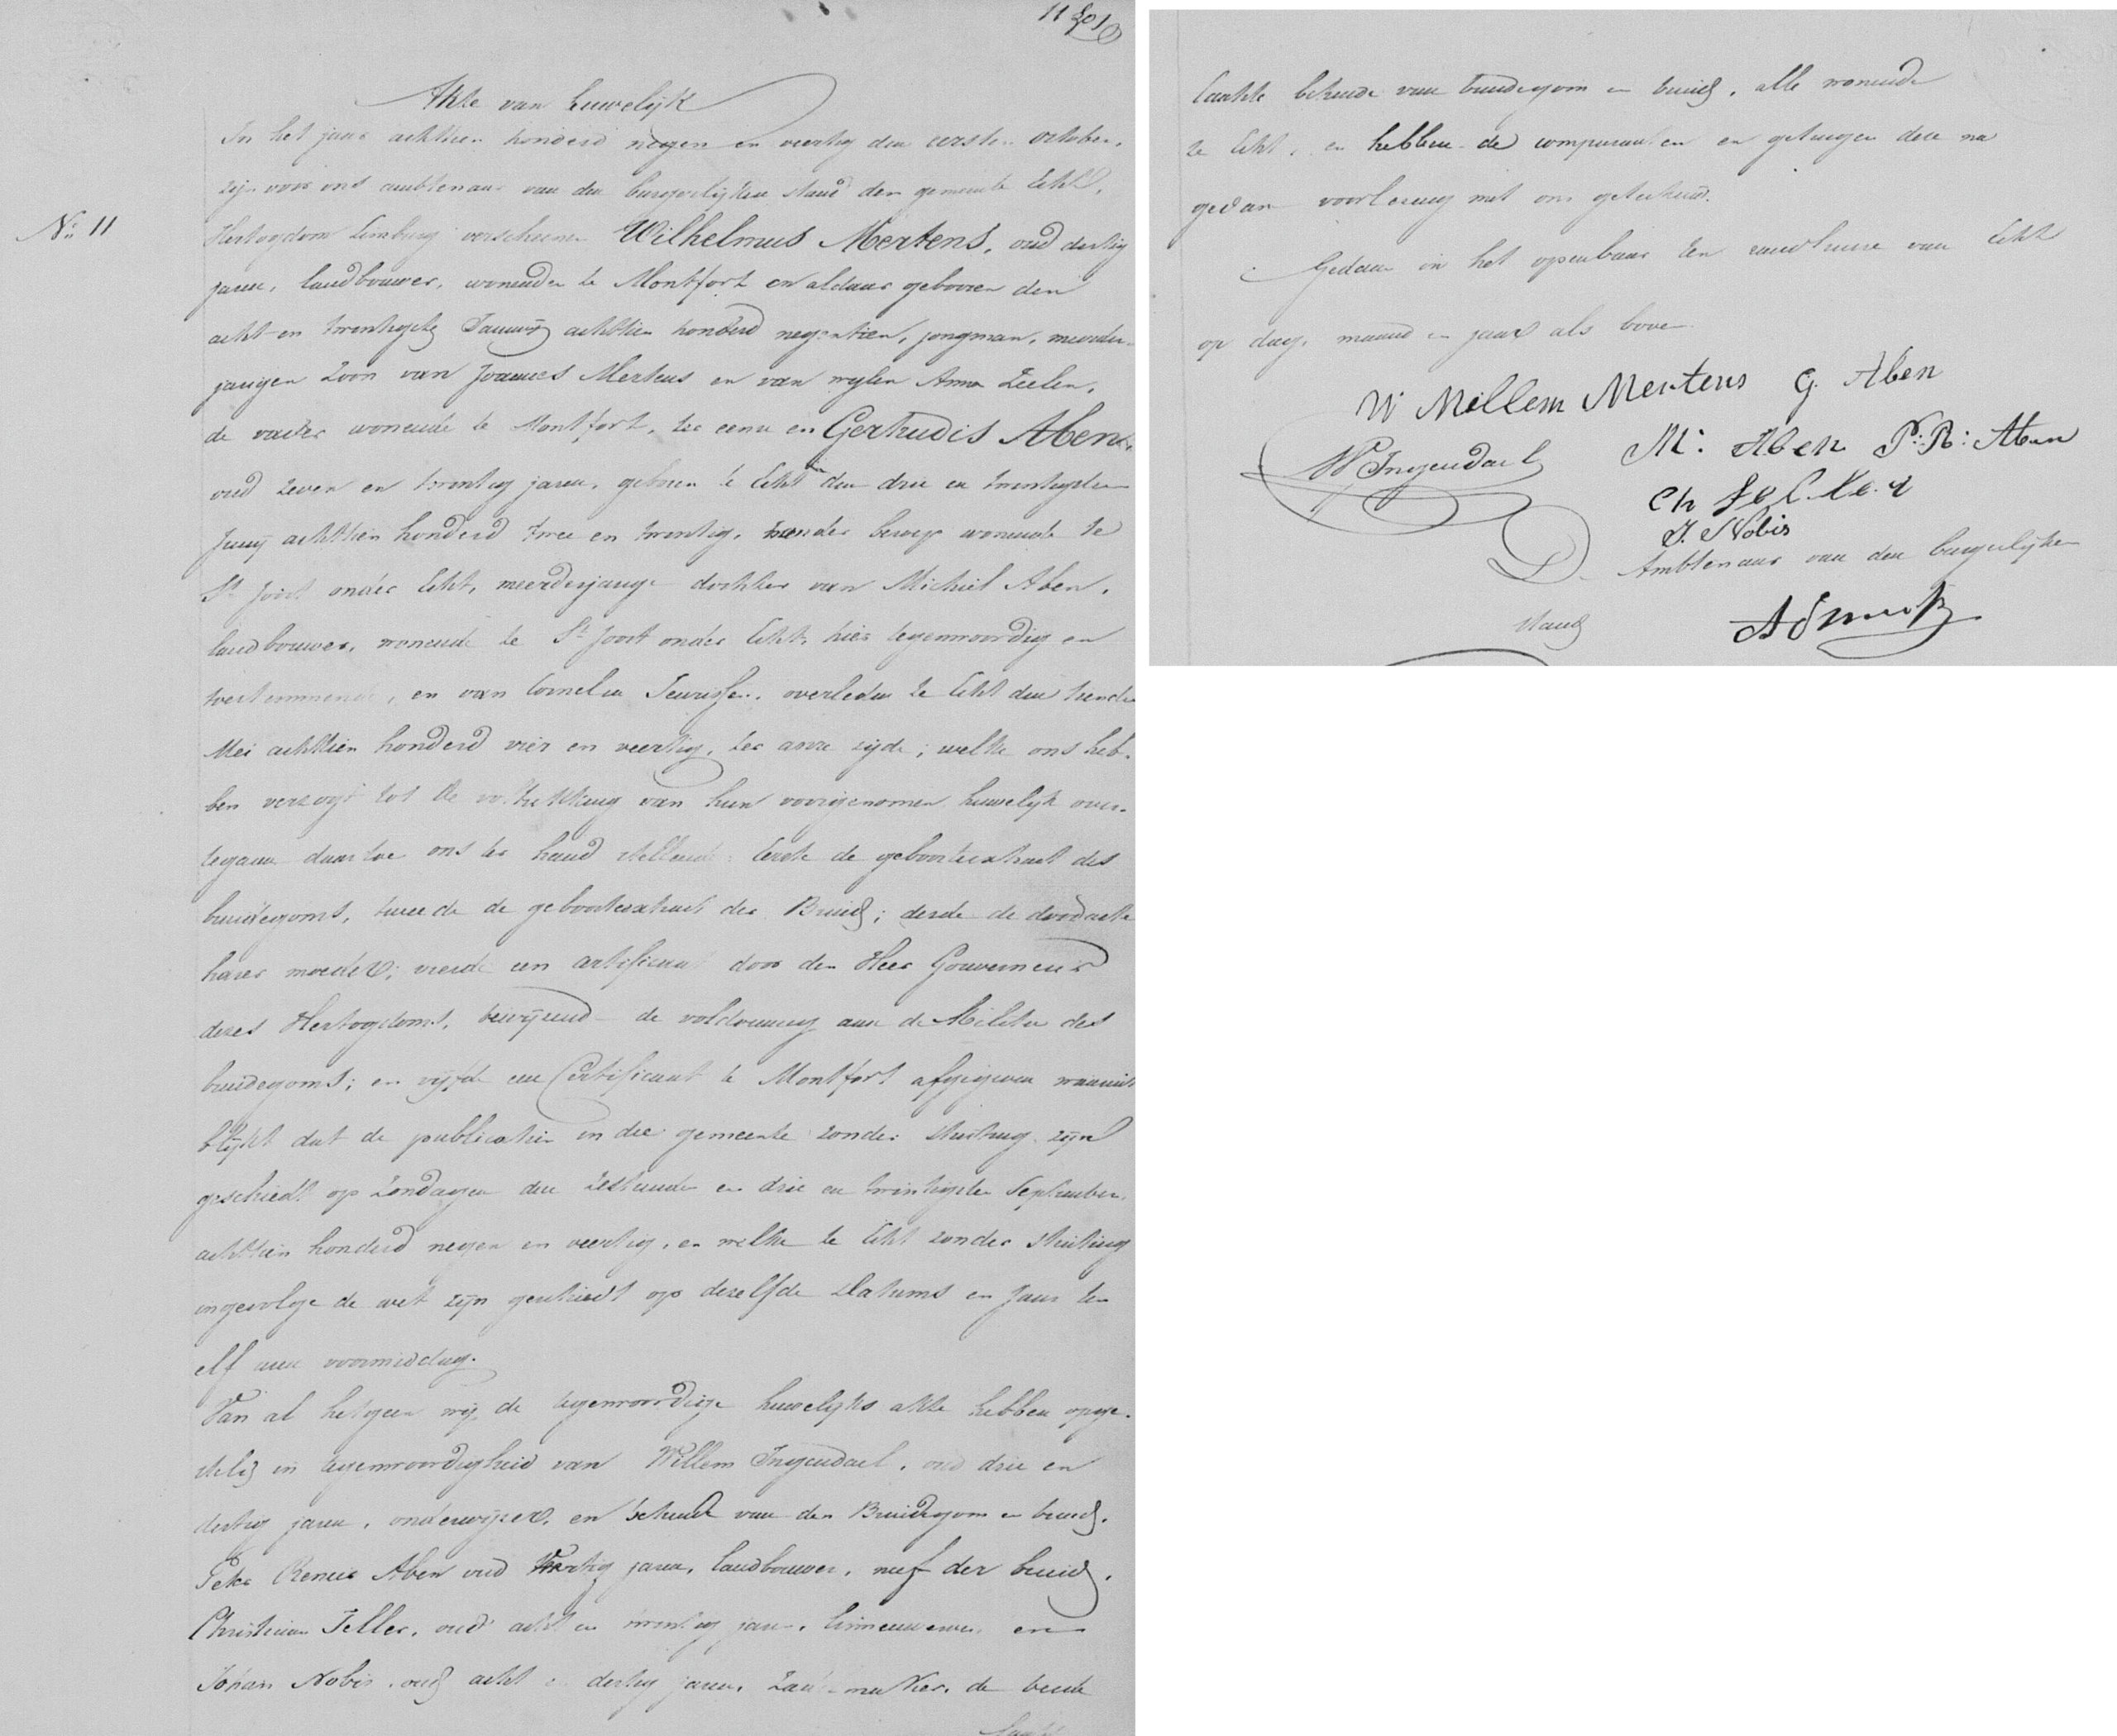 11
Akte van huwelijk
In het jaar achttien honderd negen en veertig den eersten october,
zijn voor ons ambtenaar van den burgerlijken stand der gemeente Echt,
No 11
Hertogdom Limburg verschenen Wilhelmus Mertens, oud dertig
jaren, landbouwer, wonende te Montfort en aldaar geboren den
acht en twintigste Januarij achttien honderd negentien, jongman, meerder-
jarigen zoon van Joannes Mertens en van wijlen Anna Zeelen,
de vader wonende te Montfort, ter eene en Gertrudis Aben,
oud zeven en twintig jaren, geboren te Echt den drie en twintigsten
Junij achttien honderd twee en twintig, zonder beroep wonende te
St Joost onder Echt, meerderjarige dochter van Michiel Aben,
landbouwer, wonende te St Joost onder Echt, hier tegenwoordig en
toestemmende, en van Cornelia Teunissen, overleden te Echt den
Mei achttien honderd vier en veertig, ter andre zijde; welke ons heb-
ben verzogt tot de voltrekking van hun voorgenomen huwelijk over-
tegaan daartoe ons ter hand stellende: Eerste de geboorteextract des
bruidegoms, tweede de geboorteextract der Bruid; derde de doodacte
harer moeder; vierde een certificaat door den Heer Gouverneur
dezes Hertogdoms, bewijzend de voldoening aan de Militie des
bruidegoms; en vijfde een Certificaat te Montfort afgegeven waaruit
blijkt dat de publicatien in die gemeente zonder stuiting zijn
geschiedt op Zondagen den zestienden en drie en twintigsten September
achttien honderd negen en veertig, en welke te Echt zonder stuiting
ingevolge de wet zijn geschiedt op dezelfde datums en jaar ten
elf uren voormiddag.
Van al hetgeen wij de tegenwoordige huwelijks akte hebben opge-
steld in tegenwoordigheid van Willem Ingendael, oud drie en
dertig jaren, onderwijzer, en bekende van den Bruidegom en bruid,
Peter Renier Aben oud jaren, landbouwer, neef der bruid,
Christiaan Selker, oud acht en twintig jaren, linnenwever en
Johan Nobis, oud acht en dertig jaren, maker, de beide
laatst
laatste bekende van bruidegom en bruid, alle wonende
te Echt, en hebben de comparanten en getuigen deze na
gedane voorlezing met ons geteekend.
Gedaan in het openbaar ten raadhuize van Echt
op dag, maand en jaar als boven
W Millem Mertens G. Aben
W Ingendael M: Aben P: R: Aben
Ch Selker
J. Nobis
D. Ambtenaar van den burgerlijken
stand